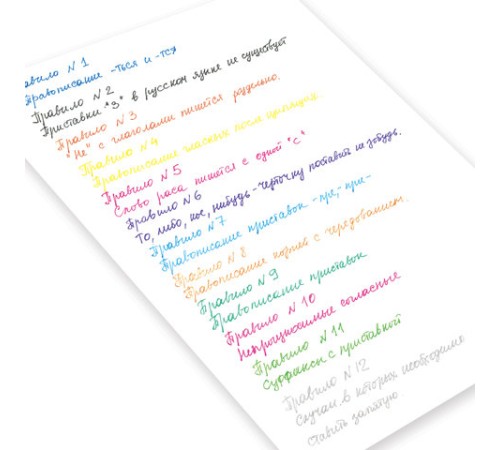 авило N 1
Правописание -ться и -тся
Правило N 2
Приставки "З" в русском языке не существует
Правило N 3
"Не" с глаголами пишется раздельно.
Правило N 4
Правописание гласных после шипящих.
Правило N 5
Слово раса пишется с одной "с"
Правило N 6
То, либо, кое, нибудь - черточку поставить не забудь.
Правило N 7
Правописание приставок - пре, - при-
Правило N 8
Правописание корней с чередованием.
Правило N 9
Правописание приставок
Правило N 10
Непроизносимые согласные
Правило N 11
Суффиксы с приставкой
Правило N 12
Случаи в которых необходимо
ставить запятую